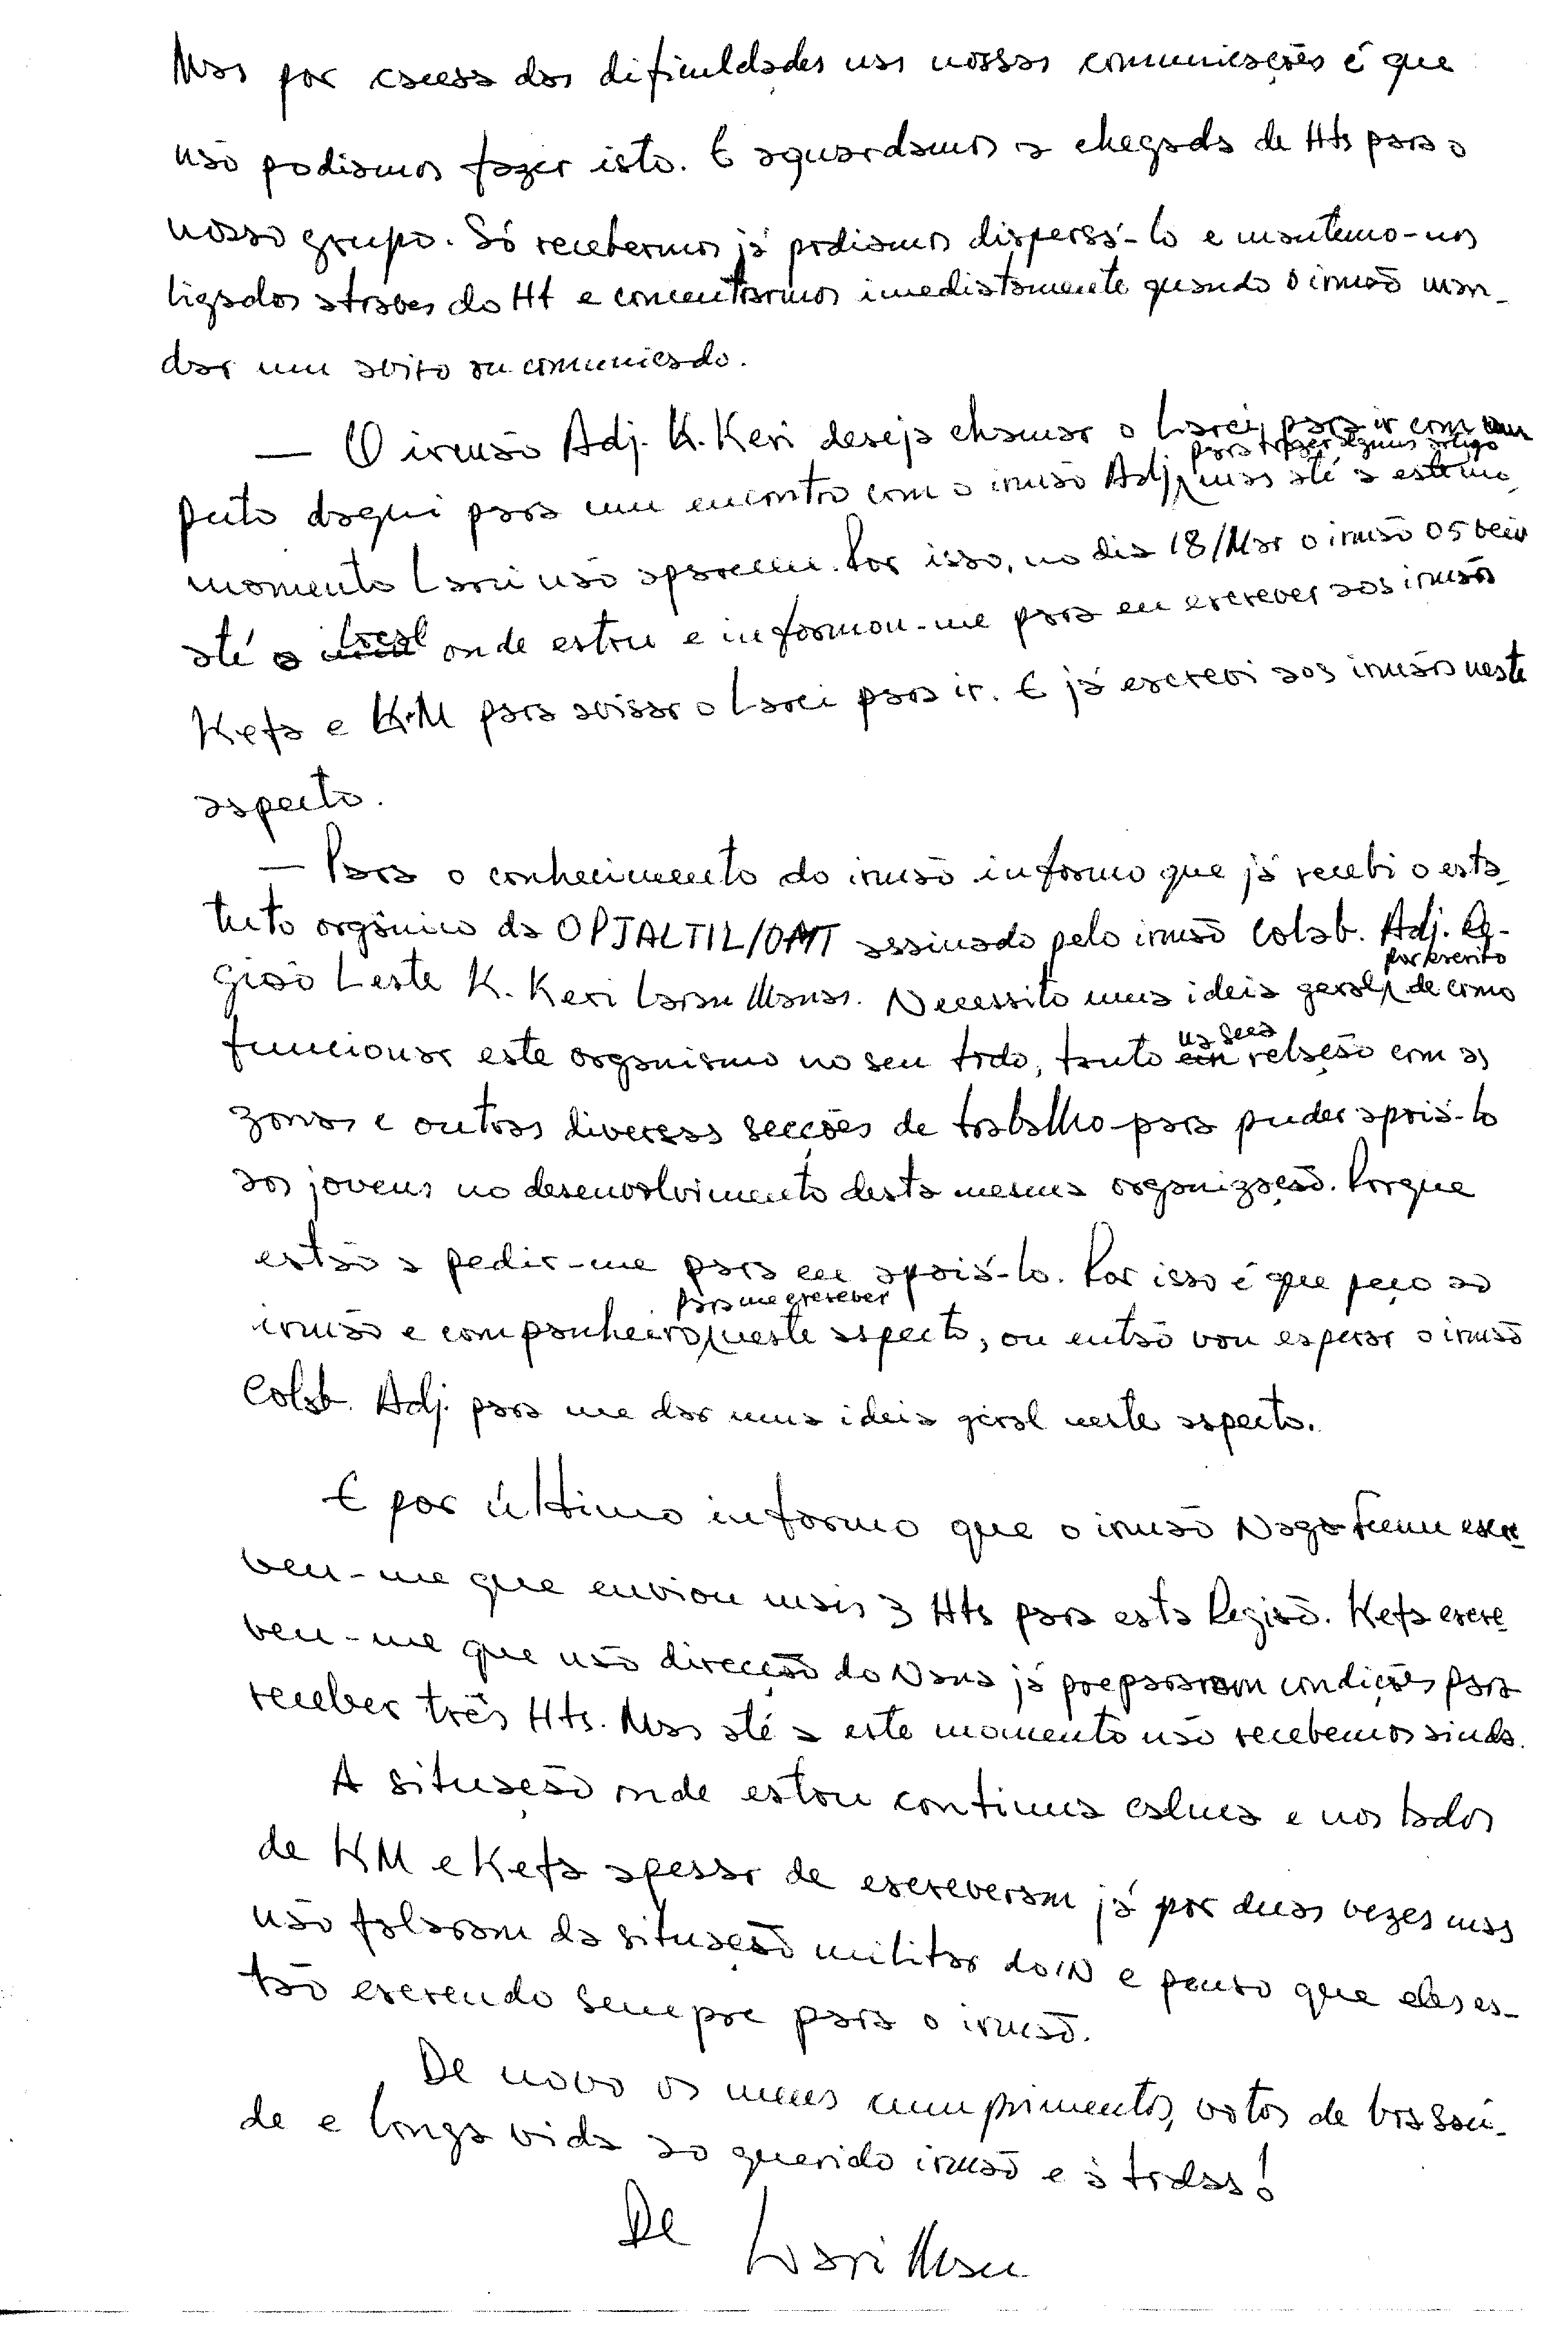 Mas por causa das dificuldades nas nossas comunicações é que
não podiamos fazer isto. E aguardamos a chegada de Hts para o
nosso grupo. Só recebermos já podiamos dispersá-lo e mantemo-nos
ligados atraves do Ht e concentrarmos imediatamente quando o irmão man-
dar um aviso ou comunicado.
— O irmão Adj. K. Keri deseja chamar o Larci, para ir com um
para trazer alguns artigo
peito daqui para um encontro com o irmão Adj, mas até a este mo
momento Larci não apareceu. Por isso, no dia 18/Mar o irmão 05 veio
até o local onde estou e informou-me para eu escrever aos irmãos
Kefa e K.M para avisar o Larci para ir. E já escrevi aos irmãos neste
aspecto.
— Para o conhecimento do irmão informo que já recebi o esta-
tuto orgânico da OPJALTIL/OMT assinado pelo irmão Colab. Adj. Re-
por escrito
gião Leste K. Keri Laran Manas. Necessito uma ideia geral, de como
na sua
funcionar este organismo no seu todo, tanto em relação com as
zonas e outras diversas secções de trabalho para puder apoiá-lo
aos jovens no desenvolvimento desta mesma organização. Porque
estão a pedir-me para eu apoiá-lo. Por isso é que peço ao
para me escrever
irmão e companheiro, neste aspecto, ou então vou esperar o irmão
Colab. Adj. para me dar uma ideia geral neste aspecto.
E por último informo que o irmão Naga Funu escre-
veu-me que enviou mais 3 Hts para esta Região. Kefa escre-
veu-me que não direcção do Nana já prepararam condições para
receber três Hts. Mas até a este momento não recebemos ainda.
A situação onde estou continua calma e nos lados
de KM e Kefa apesar de escreveram já por duas vezes mas
não falaram da situação militar do IN e penso que eles es-
tão escrendo sempre para o irmão.
De novo os meus cumprimentos, votos de boa saú-
de e longa vida ao querido irmão e à todas!
De